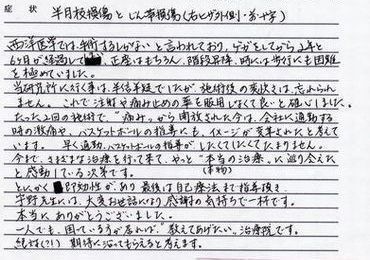 症 状 半月板損傷とじん帯損傷(右ヒザ外側・前十字)
西洋医学では、手術するしかないと言われており、ケガをしてから2年と
6ヶ月が経過して 、正座はもちろん、階段昇降、時には歩行にも困難
を極めていました。
当研究所に行く事は、半信半疑でしたが施術後の爽快さは、忘れられ
ません。これで注射や痛み止めの薬を服用しなくて良いと確信しました。
たった2回の施術で"痛み"から開放された今は、会社に通勤する
時の激痛や、バスケットボールの指導にも、イメージが変革されたと考えて
います。早く通勤、バスケットボールの指導がしたくてしたくてたまりません。
今まで、さまざまな治療を行って来て、やっと"本当の治療"に巡り会えた
(本物)
と感動している次第です。
とにかく 即効性があり最後は自己療法まで指導頂き
宇野先生には、大変お世話になり感謝の気持ちで一杯です。
本当にありがとうございました。
一人でも、困っている方が居れば"教えてあげたい"治療院です。
絶対(?!)期待に沿ってもらえると考えます。